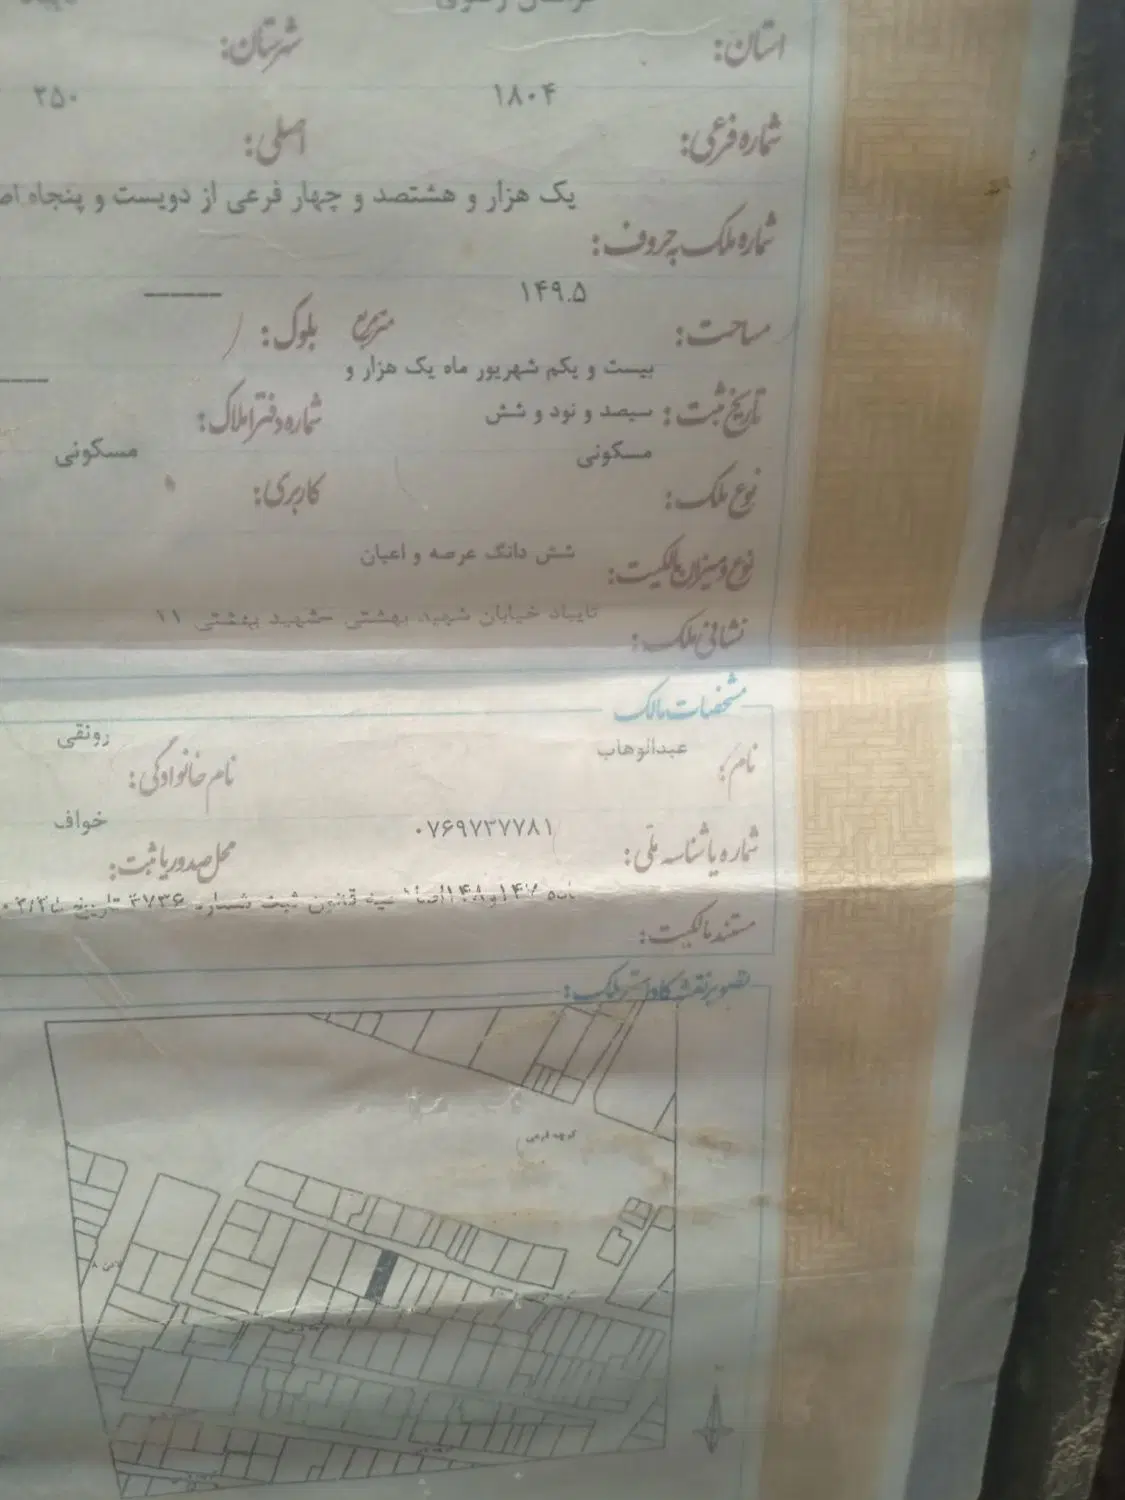 خراسان رضوی
استان: شهرستان:
۱۸۰۴ ۲۵۰
شماره فرعی: اصلی:
یک هزار و هشتصد و چهار فرعی از دویست و پنجاه
شماره ملک به حروف:
۱۴۹.۵
مساحت: مترمربع بلوک:
بیست و یکم شهریور ماه یک هزار و
تاریخ ثبت: سیصد و نود و شش شماره دفتر املاک:
مسکونی مسکونی
نوع ملک: کاربری:
شش دانگ عرصه و اعیان
نوع و میزان مالکیت:
تایباد خیابان شهید بهشتی شهید بهشتی ۱۱
نشانی ملک:
مشخصات مالک
عبدالوهاب رونقی
نام: نام خانوادگی:
۰۷۶۹۷۳۷۷۸۱ خواف
شماره یا شناسه ملی: محل صدور یا ثبت:
ماده ۱۴۷ و ۱۴۸ قانون ثبت شماره
مستند مالکیت:
تصویر نقشه کاداستر ملک:
کوچه فرعی